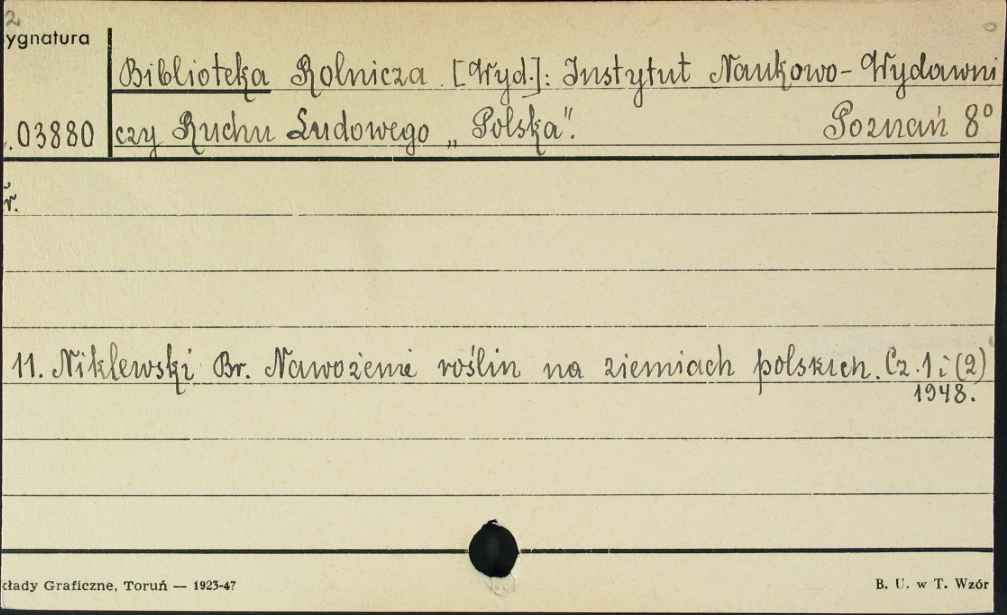 2
ygnatura
Biblioteka Rolnicza. [Wyd.]: Instytut Naukowo-Wydawni
.03880 czy Ruchu Ludowego „Polska". Poznań 8°
ř.
11. Niklewski Br. Nawożenie roślin na ziemiach polskich. Cz. 1 i (2)
1948.
kłady Graficzne, Toruń — 1923-47 B. U. w T. Wzór